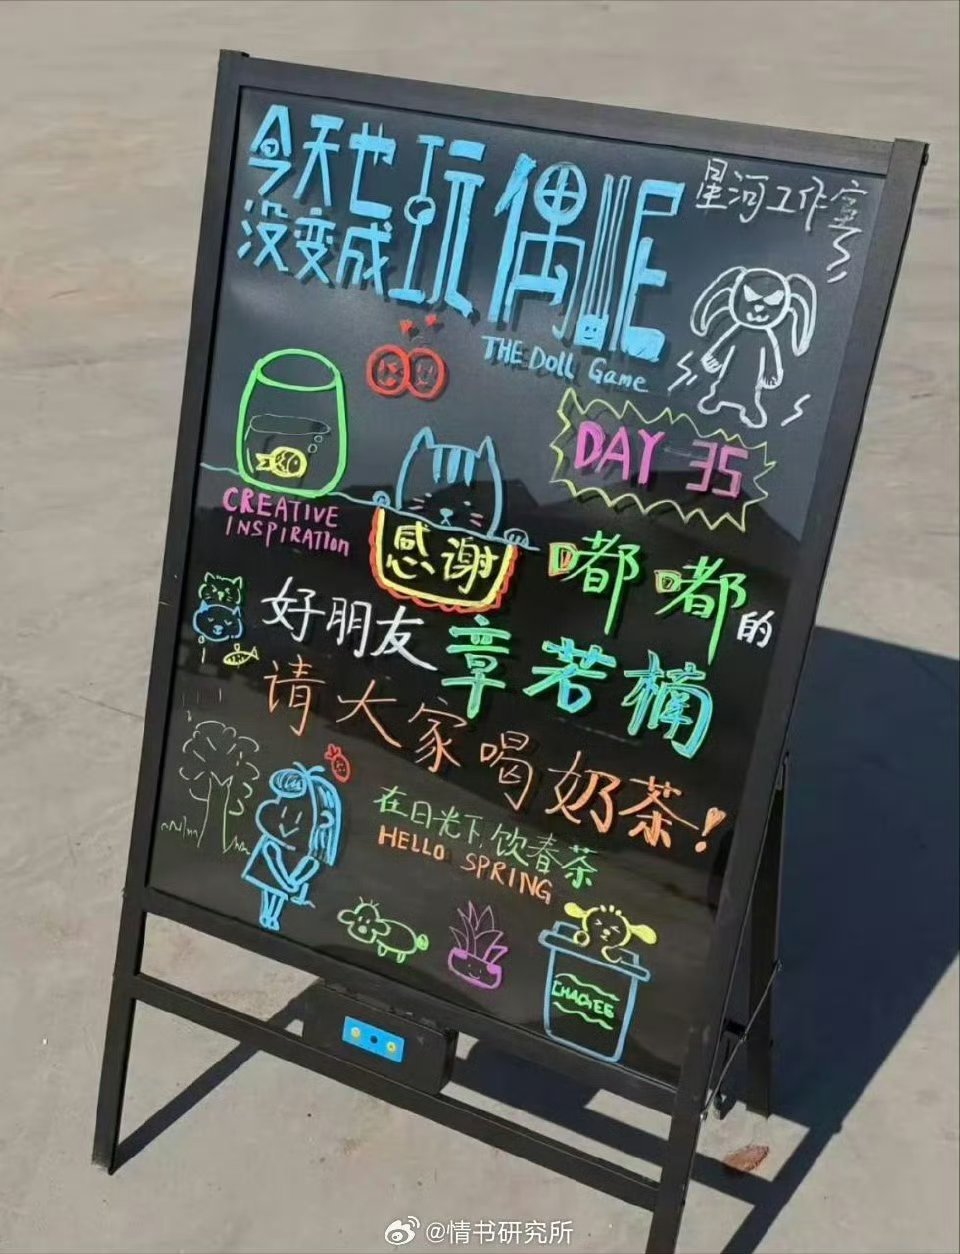 今天也
没变成
玩偶呢
THE Doll Game
星河工作室
DAY 35
CREATIVE
INSPIRATIon
感谢
嘟嘟的
好朋友章若楠
请大家喝奶茶!
在日光下,饮春茶
HELLO SPRING
CHAGEE
@情书研究所